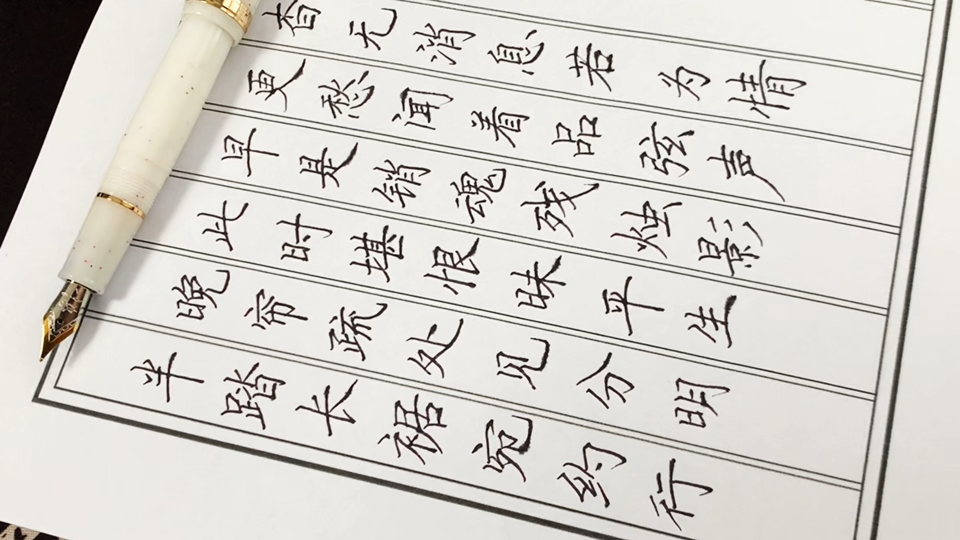 半踏长裾宛约行
晚帘疏处见分明
此时堪恨昧平生
早是销魂残烛影
更愁闻着品弦声
杳无消息若为情